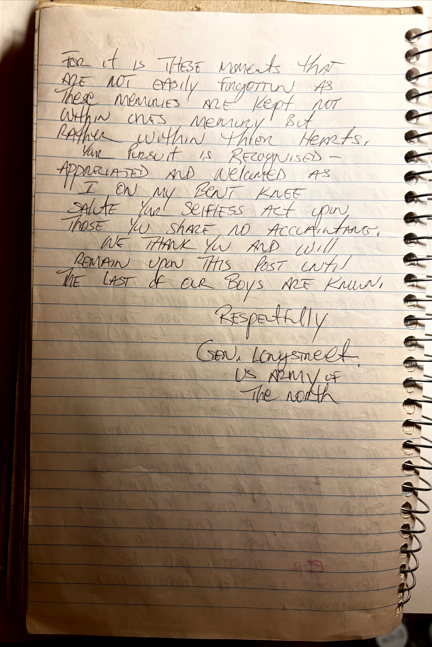 FOR it is THESE moments that
ARE NOT EASILY FORGOTTEN AS
These memories ARE KEPT NOT
WITHIN ONES MEMORY BUT
RATHER WITHIN THIER HEARTS.
YOUR PURSUIT is RECOGNISED –
APPRECIATED AND WELCOMED AS
I ON MY BENT KNEE
SALUTE YOUR SELFLESS ACT upon
THOSE YOU SHARE NO ACCLAINTANCE.
WE THANK YOU AND WILL
REMAIN UPON THIS POST UNTIL
THE LAST OF OUR BOYS ARE KNOWN.
RESPECTFULLY
GEN. Longstreet.
US ARMY OF
The NORTH